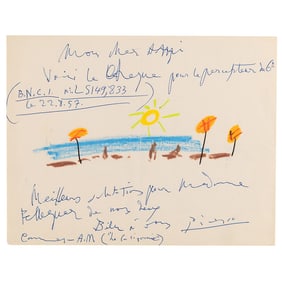 Mon cher
Voici le chèque pour le percepteur du 6e
(B.N.C.I. N.LS 149,833
le 22.8.57.
Meilleurs salutations pour Madame
de nous deux
Bien à vous Picasso
Cannes A.M (La Californie)